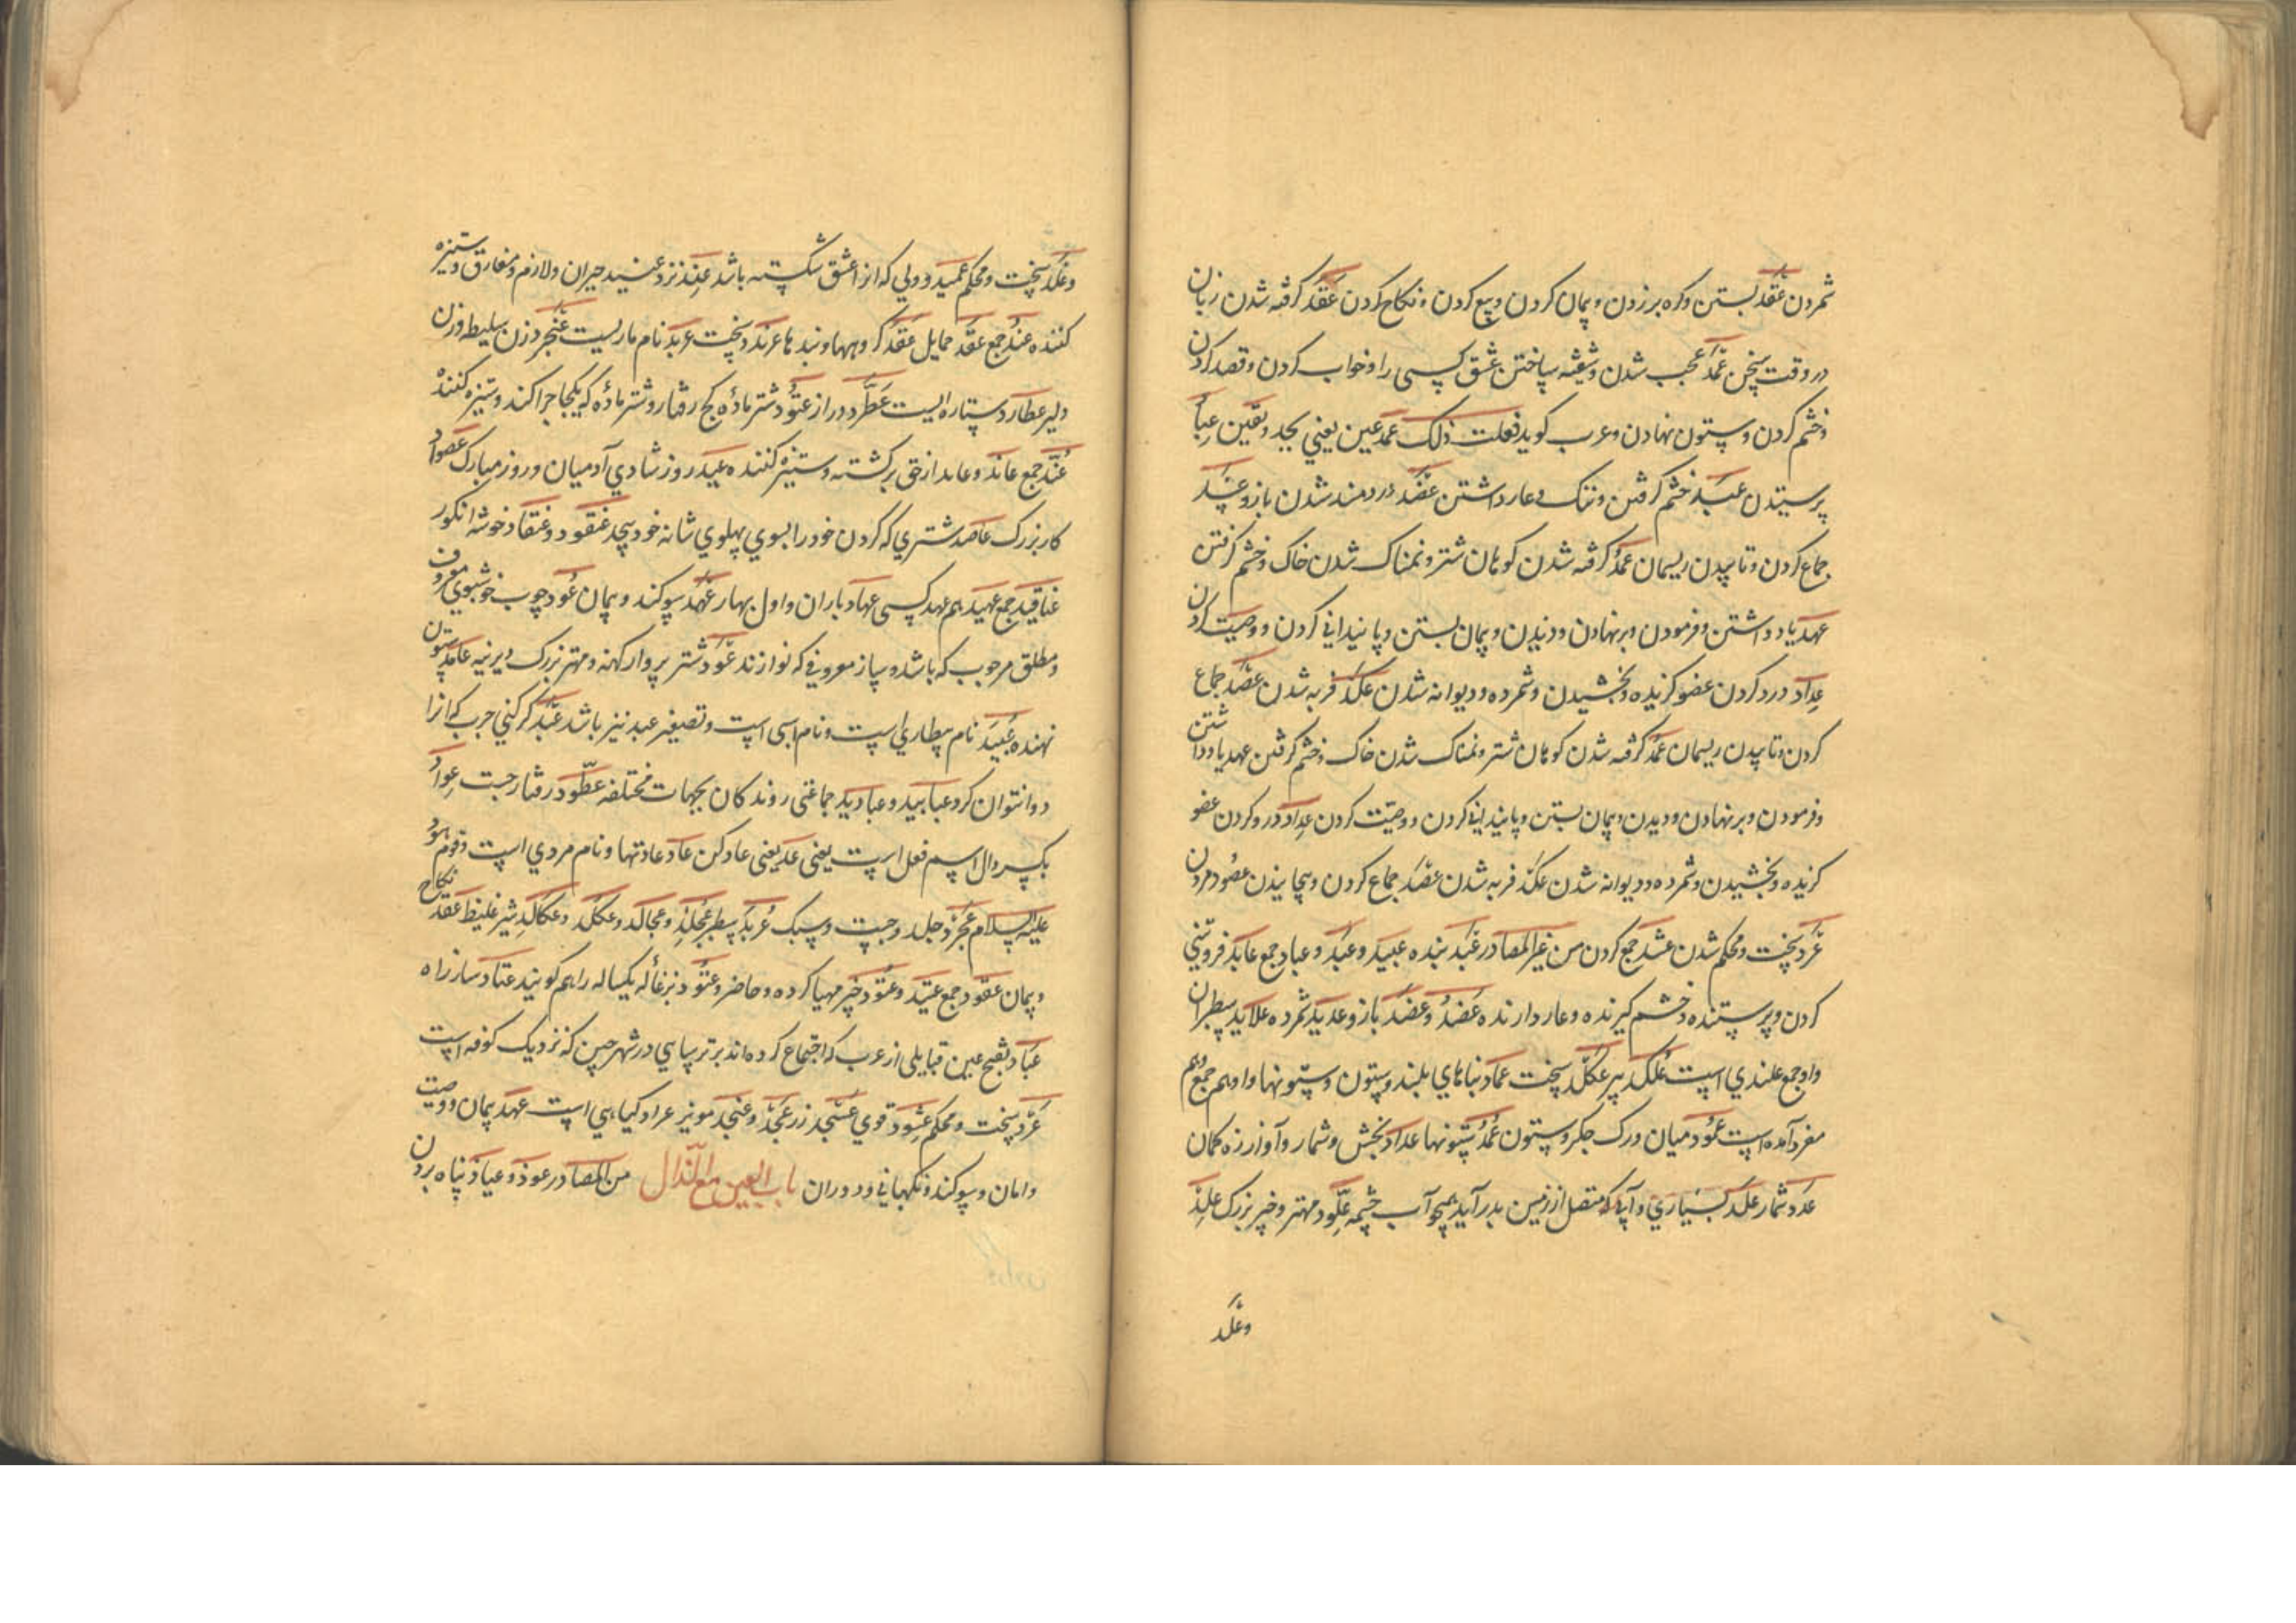 شمردن عَقد بستن و کره برزدن و پیمان کردن و بیع کردن و نکاح کردن عَقَد کرفته شدن زبان
در وقت سخن عَمَد عجب شدن و شیفته ساختن عشق کسی را و خواب کردن و قصد کردن
و خشم کردن و ستون نهادن و عرب کوید فعلت ذلک عمد عین یعنی بجد و یقین عِباد
پرستیدن عبَد خشم کرفتن و ننک و عار داشتن عَضَد دردمند شدن بازو
جماع کردن و تابیدن ریسمان عَمَد کرفته شدن کوهان شتر و نمناک شدن خاک و خشم کرفتن
عهد یاد داشتن و فرمودن و برنهادن و دیدن و پیمان بستن و پایندانی کردن و وصیت کردن
عِداد درد کردن عضو کزیده و بخشیدن و شمرده و دیوانه شدن عکَد فربه شدن عصَد جماع
کردن و تابیدن ریسمان عَمَد کرفته شدن کوهان شتر و نمناک شدن خاک و خشم کرفتن عهد یاد داشتن
و فرمودن و برنهادن و دیدن و پیمان بستن و پایندانی کردن و وصیّت کردن عِداد درد کردن عضو
کزیده و بخشیدن و شمرده و دیوانه شدن عکَد فربه شدن عصَد جماع کردن و پیچانیدن عصُود مردن
عَرد سخت و محکم شدن عشد جمع کردن من غیر المصادر عَبد بنده عبید و عُبُد و عباد جمع عابد فروتنی
کردن و پرستنده و خشم کیرنده و عار دارنده عَضُد و عضَد بازو عدید شمرده علابد سطبران
و او جمع علندی است عُلکد پیر عِکلّد سخت عماد بناهای بلند و ستون و ستونها و او هم جمع و هم
مفرد آمده است عمُود میان و رک جکر و ستون عُمُد ستونها عداد بخش و شمار و آواز زه کمان
عَدد شمار عَدّ بسیاری و آبی که متصل از زمین بدر آید همچو آب چشمه عِلّود مهتر و خیر بزرک علند
و علّد
و علَّد سخت و محکم عمید و دلی که از عشق شکسته باشد عِند نزد عنید حیران و لازم و مفارق و ستیزه
کننده عُنُد جمع عِقد حمایل عُقَد کره‌ها و بندها عرند سخت عربد نام ماریست عنجرد زن سلیط و زن
دلیر عطارد ستاره ایست عَطَرَّد دراز عنُود شتر ماده کج رفتار و شتر ماده که یکجا چرا کند و ستیزه کننده
عُنَّد جمع عاند و عاند از حق برکشته و ستیزه کننده عید روز شادی آدمیان و روز مبارک عصواد
کار بزرک عاصد شتری که کردن خود را بسوی پهلوی شانه خود پیچد عنقود و عنقاد خوشه انکور
عناقید جمع عهید هم عهد کسی عهاد باران و اول بهار عَهد سوکند و پیمان عُود چوب خوشبوی معروف
و مطلق هر چوب که باشد و ساز معروفی که نوازند عَود شتر پروار کهنه و مهتر بزرک دیرینه عامد ستون
نهنده عُبَید نام بیطاری است و نام اسبی است و تصغیر عبد نیز باشد عَبَد کرکنی جرب که انرا
دوا نتوان کرد عبابید و عبادید جماعتی روندکان بجهات مختلفه عطّود رفتار جست عِواد
بکسر دال اسم فعل است یعنی عد یعنی عاد کن عاد عادتها و نام مردی است و قوم هود
علیه السلام عجرد جلد و جست و سبک عُربد سطبر عُجَلِد و عجالد و عکلد و عکالد شیر غلیظ عَقد نکاح
و پیمان عقود جمع عتید و عتود چیز مهیا کرده و حاضر و عَتُود بزغاله یکساله را هم کویند عتاد ساز راه
عَباد بفتح عین قبایلی از عرب که اجتماع کرده‌اند بر ترسایی در شهر حین که نزدیک کوفه است
عَرد سخت و محکم عَشود قوی عسجد زر عَنجَد و عنجد مویز عراد کیاهی است عهد پیمان و وصیت
و امان و سوکند و نکهبانی و دوران باب العین مع الذّال من المصادر عوذ و عیاذ پناه بردن